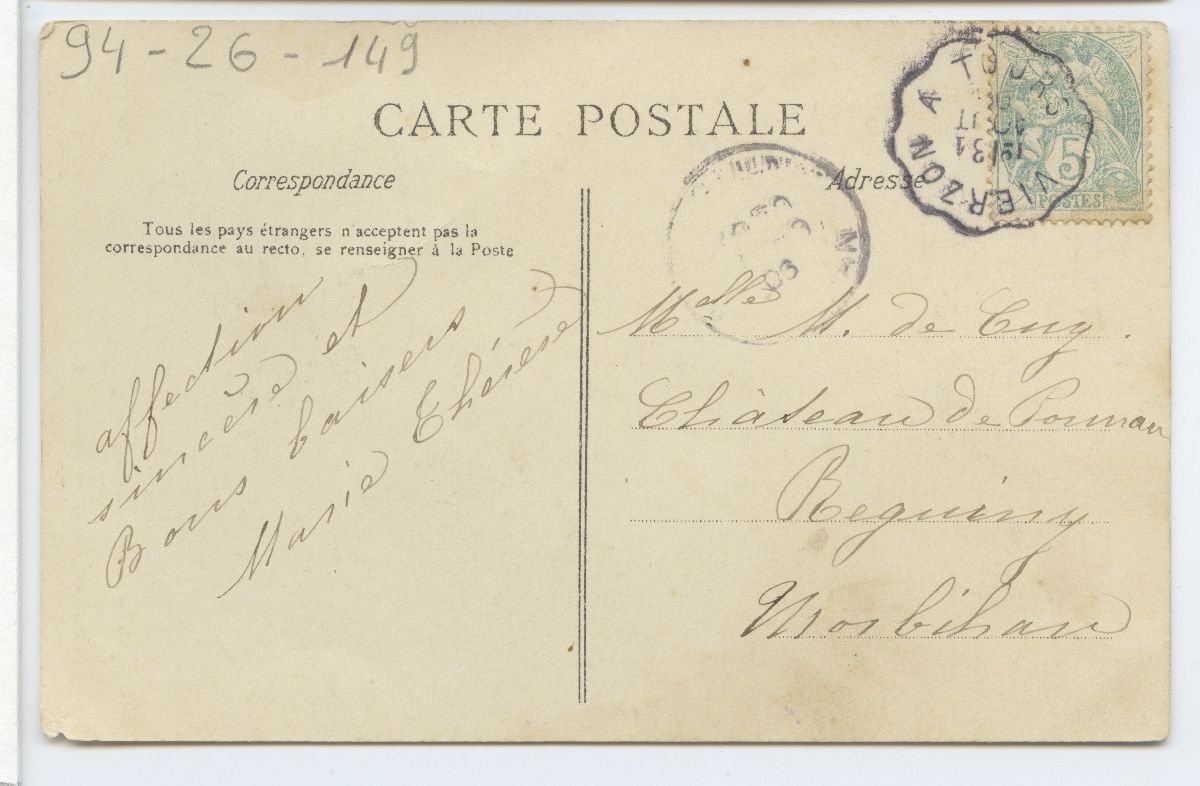 94-26-149
CARTE POSTALE
Correspondance
Tous les pays étrangers n'acceptent pas la
correspondance au recto, se renseigner à la Poste
affection
sincère et
Bons baisers
Marie Thérèse
Adresse
VIERZON A TOURS
31
AOUT
5
POSTES
06
Melle M. de Cuy.
Château de
Reguiny
Morbihan